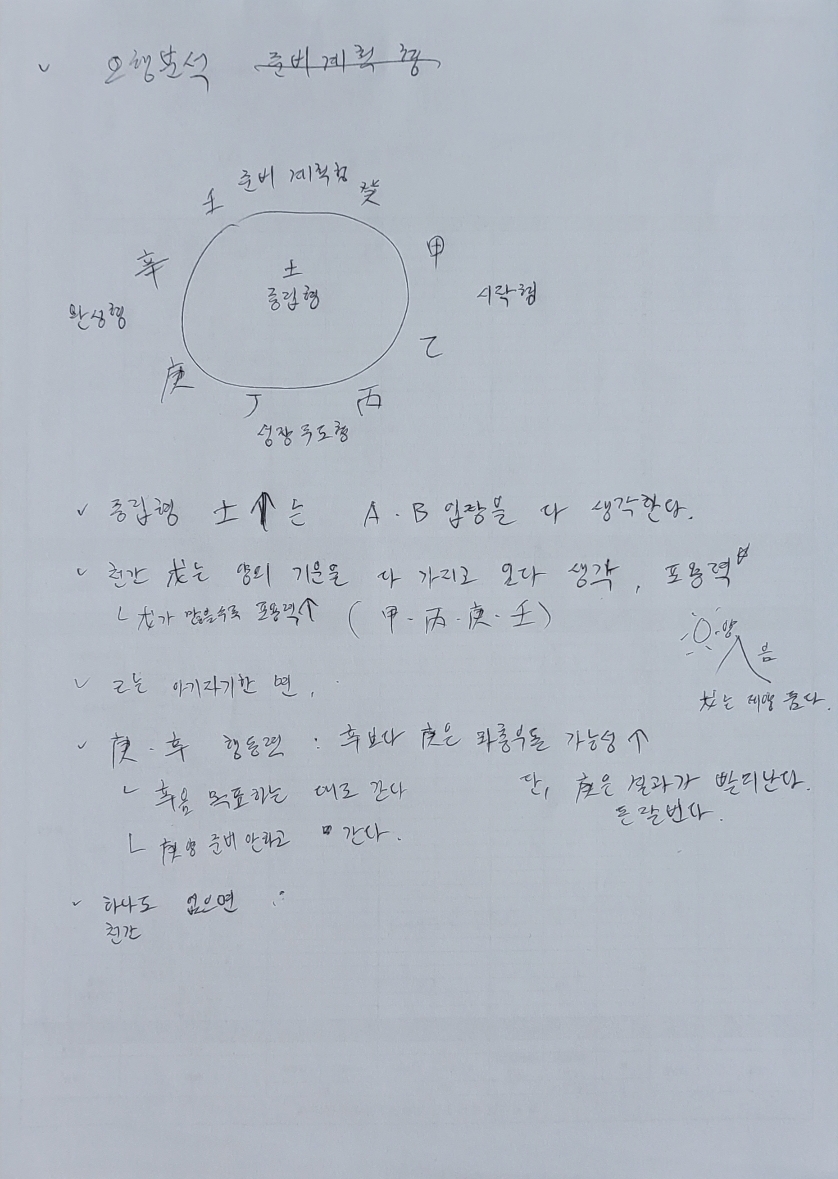 ✓ 오행분석 준비계획형
준비 계획형
壬 癸
辛 甲
土
중립형
완성형 시작형
庚 乙
丁 丙
성장주도형
✓ 중립형 土↑는 A·B 입장을 다 생각한다.
✓ 천간 戊는 양의 기운을 다 가지고 있다 생각, 포용력
ㄴ戊가 많을수록 포용력↑ (甲·丙·庚·壬)
양
음
戊는 태양 품다.
✓ 己는 아기자기한 면,
✓ 庚·辛 행동력 : 辛보다 庚은 좌충우돌 가능성↑
ㄴ 辛음 목표하는 대로 간다
단, 庚은 결과가 빨리난다.
돈 잘번다.
ㄴ 庚양 준비안하고 간다.
✓ 하나도 없으면 :
천간